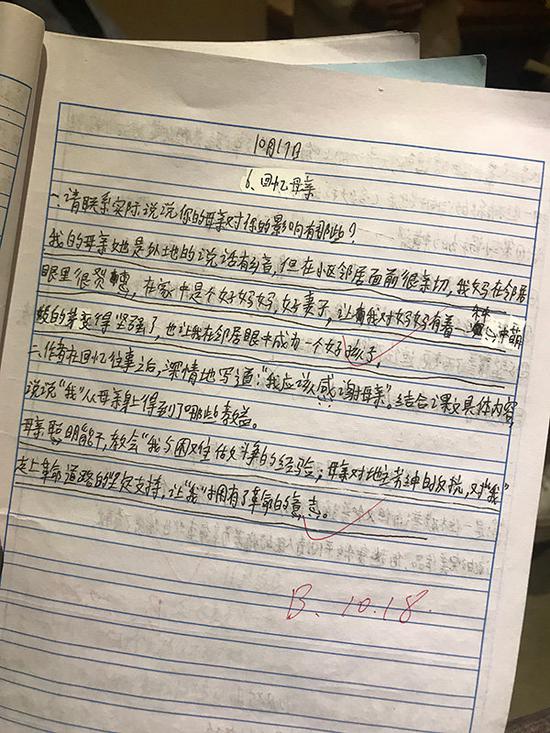 10月17日
6、回忆母亲
一、请联系实际说说你的母亲对你的影响有那些?
我的母亲她是外地的说话有口音,但在小区邻居面前很亲切,我妈在邻居
眼里很,在家中是个好妈妈,好妻子,让我对妈妈有着一
的变得坚强了,也让我在邻居眼中成为一个好孩子。
二、作者在回忆往事之后,深情地写道:“我应该感谢母亲”。结合课文具体内容
说说“我”从母亲身上得到了哪些教益。
母亲聪明能干,教会“我与困难作斗争的经验;母亲对地主老绅的反抗,对“我”
走上革命道路的坚定支持,让“我”拥有了革命的意志。
B. 10.18.